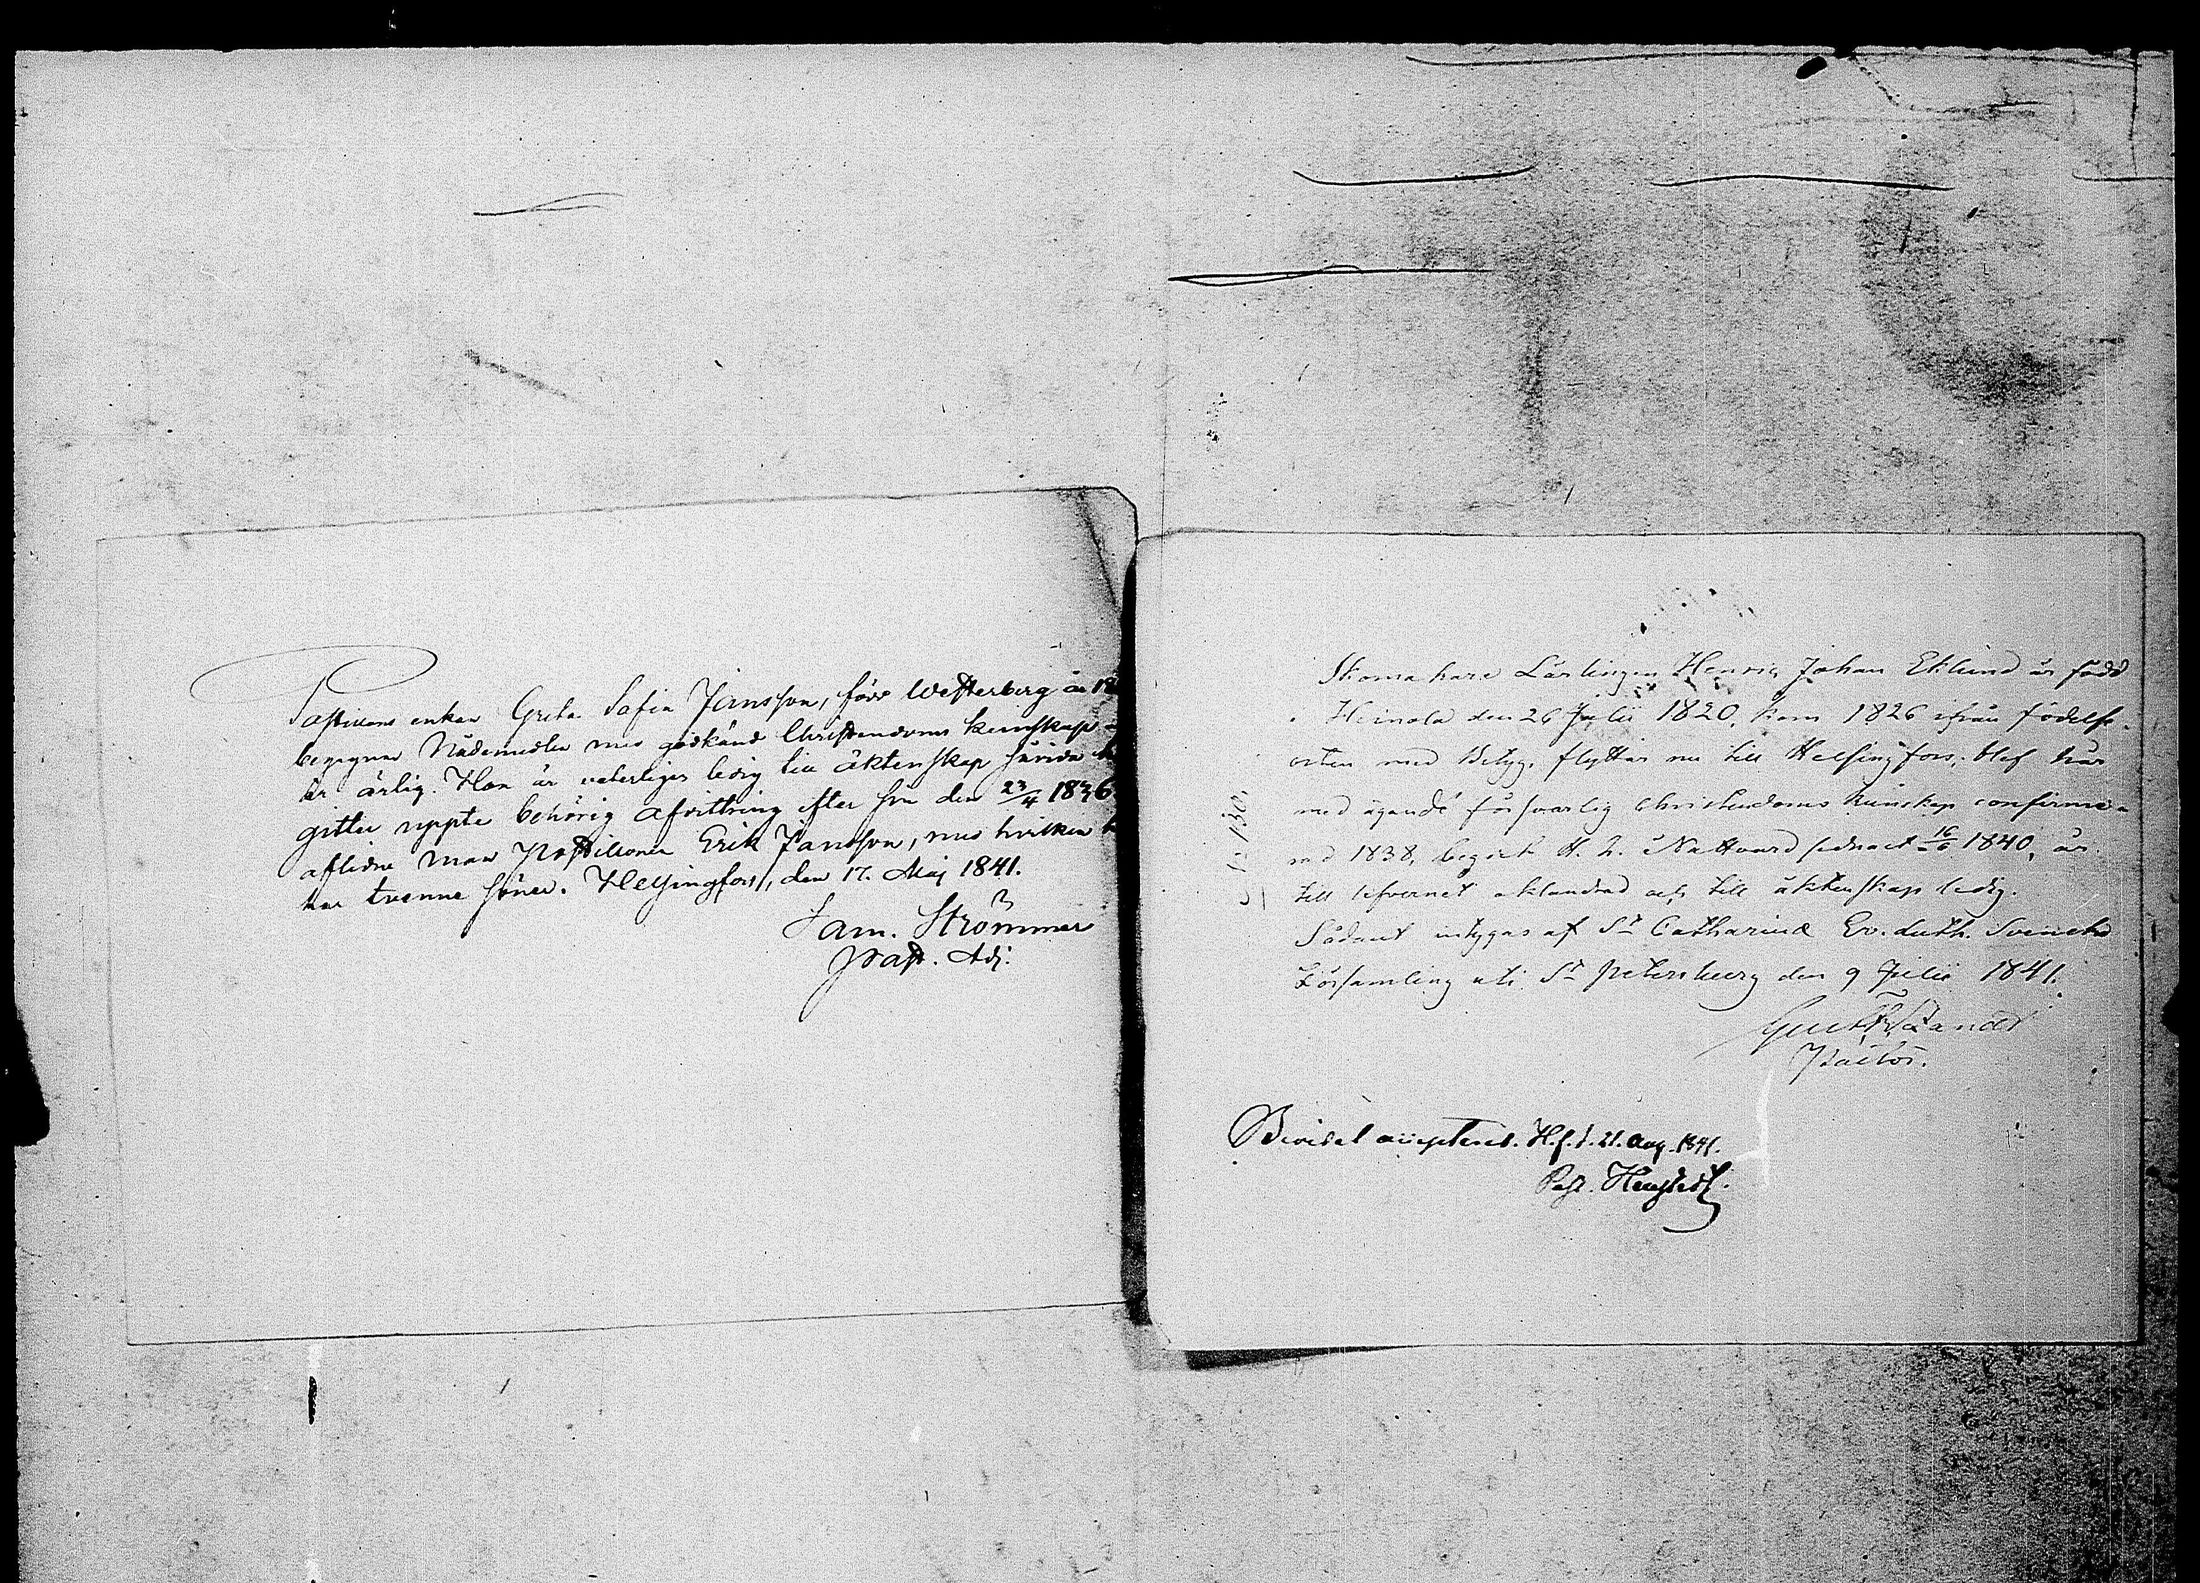 Postillons enkan Greta Sofia Jansson, född Westerberg är 18
begagnar Nådemedlen med godkänd Christendoms kunskap
är ärlig. Hon är veterligen ledig till äktenskap så vida
gitter uppte behörig afvittring efter sin den 23/4 1836
aflidne man Postillonen Erik Jansson, med hvilken h
har tvenne söner. Helsingfors, den 17. Maj 1841.
Sam. Strömmer
Past. Adj:
Skomakare Lärlingen Henric Johan Eklund är född
i Heinola den 26 Julii 1820, kom 1826 ifrån födelse-
orten med Betyg, flyttar nu till Helsingfors; blef här
med ägande försvarlig christendoms kunskap confirme-
rad 1838, begick H. H. Nattvard sednast 16/6 1840, är
till lefvernet oklandrad och till äktenskap ledig.
Sådant intygas af St Catharinæ Ev. Luth. Svenska
Församling uti St Petersburg den 9 Julii 1841.
Pastor.
Beviset accepteradt. H.f. d. 21. Aug. 1841.
Past.